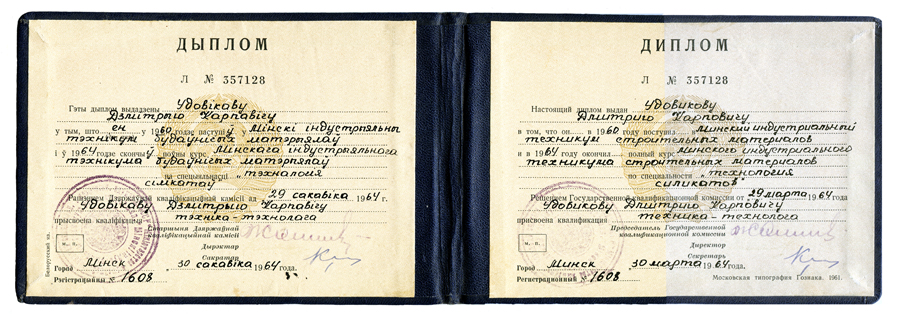 ДЫПЛОМ
Л № 357128
Гэты дыплом выдадзены Удовікаву
Дзмітрыю Карпавічу
у тым, што ён у 1960 годзе паступіў у Мінскі індустрыяльны
тэхнікум будаўнічых матэрыялаў
і ў 1964 годзе скончыў поўны курс Мінскага індустрыяльнага
тэхнікума будаўнічых матэрыялаў
па спецыяльнасці „тэхналогія
сілікатаў“
Рашэннем Дзяржаўнай кваліфікацыйнай камісіі ад 29 сакавіка 1964 г.
Удовікаву Дзмітрыю Карпавічу
прысвоена кваліфікацыя
тэхніка-тэхнолага
Старшыня Дзяржаўнай
кваліфікацыйнай камісіі
Дырэктар
Сакратар
м. п.
Город Мінск 30 сакавіка 1964 года.
Рэгістрацыйны № 1608
Белорусский яз.
ДИПЛОМ
Л № 357128
Настоящий диплом выдан Удовикову
Дмитрию Карповичу
в том, что он в 1960 году поступил в Минский индустриальный
техникум строительных материалов
и в 1964 году окончил полный курс Минского индустриального
техникума строительных материалов
по специальности „технология
силикатов“
Решением Государственной квалификационной комиссии от 29 марта 1964 года
Удовикову Дмитрию Карповичу
присвоена квалификация
техника-технолога
Председатель Государственной
квалификационной комиссии
Директор
Секретарь
м. п.
Город Минск 30 марта 1964 года.
Регистрационный № 1608
Московская типография Гознака. 1961.